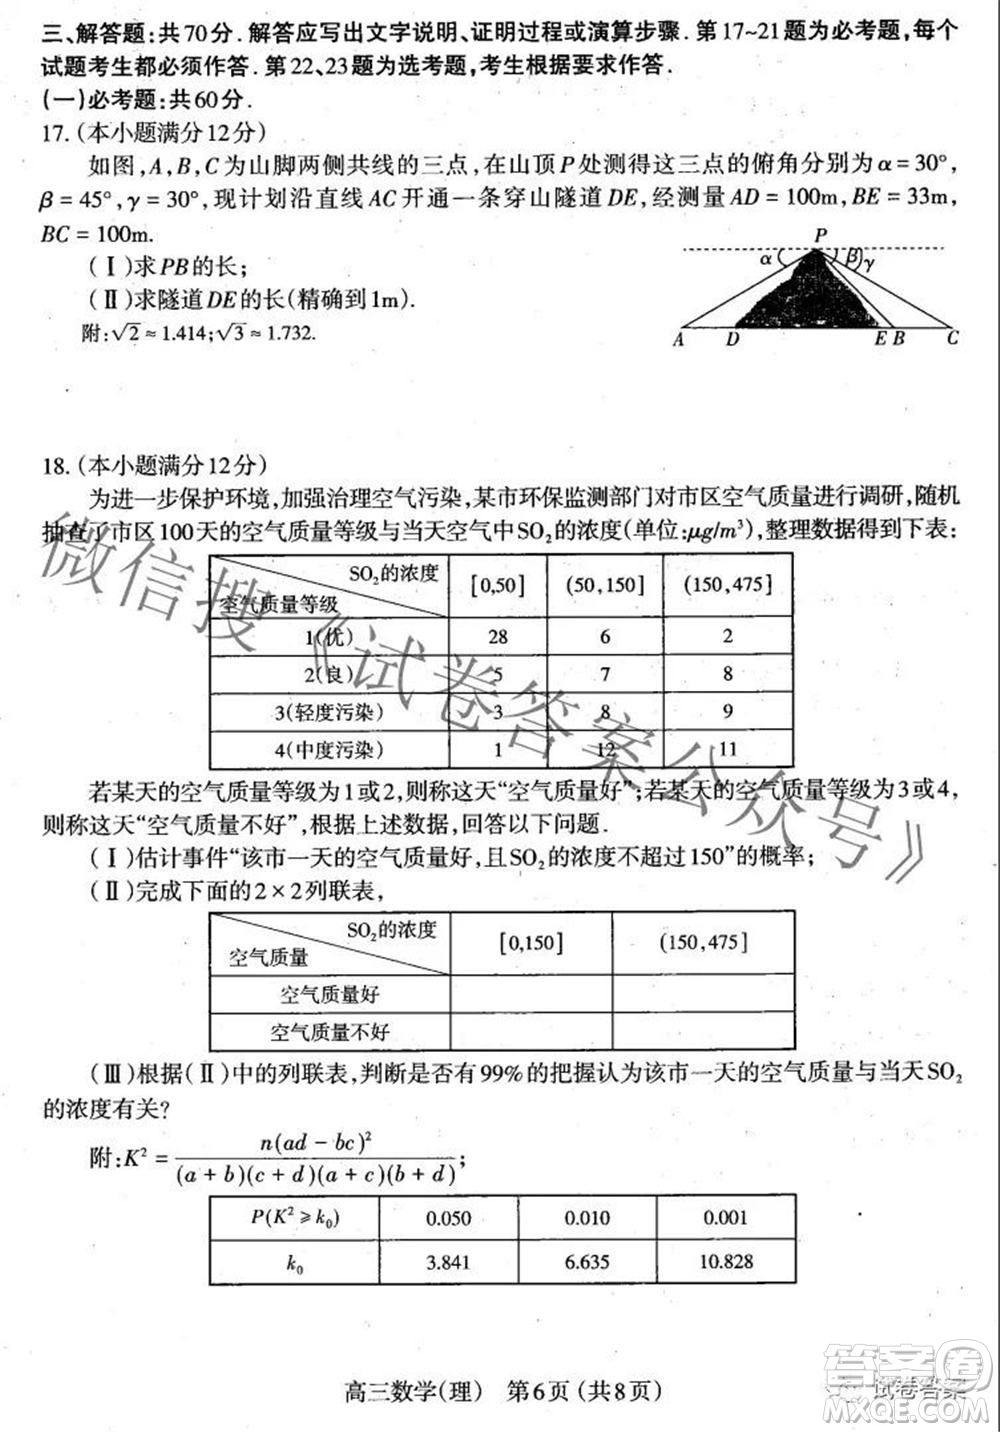 三、解答题:共70分.解答应写出文字说明、证明过程或演算步骤.第17~21题为必考题,每个
试题考生都必须作答.第22、23题为选考题,考生根据要求作答.
(一)必考题:共60分.
17.(本小题满分12分)
如图,A,B,C为山脚两侧共线的三点,在山顶P处测得这三点的俯角分别为α=30°,
β=45°,γ=30°,现计划沿直线AC开通一条穿山隧道DE,经测量AD=100m,BE=33m,
BC=100m.
(Ⅰ)求PB的长;
(Ⅱ)求隧道DE的长(精确到1m).
附:√2≈1.414;√3≈1.732.
P
α β γ
A D E B C
18.(本小题满分12分)
为进一步保护环境,加强治理空气污染,某市环保监测部门对市区空气质量进行调研,随机
抽查了市区100天的空气质量等级与当天空气中SO₂的浓度(单位:μg/m³),整理数据得到下表:
SO₂的浓度
空气质量等级 [0,50] (50,150] (150,475]
1(优) 28 6 2
2(良) 5 7 8
3(轻度污染) 3 8 9
4(中度污染) 1 12 11
若某天的空气质量等级为1或2,则称这天“空气质量好”;若某天的空气质量等级为3或4,
则称这天“空气质量不好”,根据上述数据,回答以下问题.
(Ⅰ)估计事件“该市一天的空气质量好,且SO₂的浓度不超过150”的概率;
(Ⅱ)完成下面的2×2列联表,
SO₂的浓度
空气质量 [0,150] (150,475]
空气质量好
空气质量不好
(Ⅲ)根据(Ⅱ)中的列联表,判断是否有99%的把握认为该市一天的空气质量与当天SO₂
的浓度有关?
附:K²=n(ad-bc)²/(a+b)(c+d)(a+c)(b+d);
P(K²≥k₀) 0.050 0.010 0.001
k₀ 3.841 6.635 10.828
高三数学(理) 第6页(共8页)
微信搜《试卷答案公众号》
试卷答案
答案圈
MXQE.COM